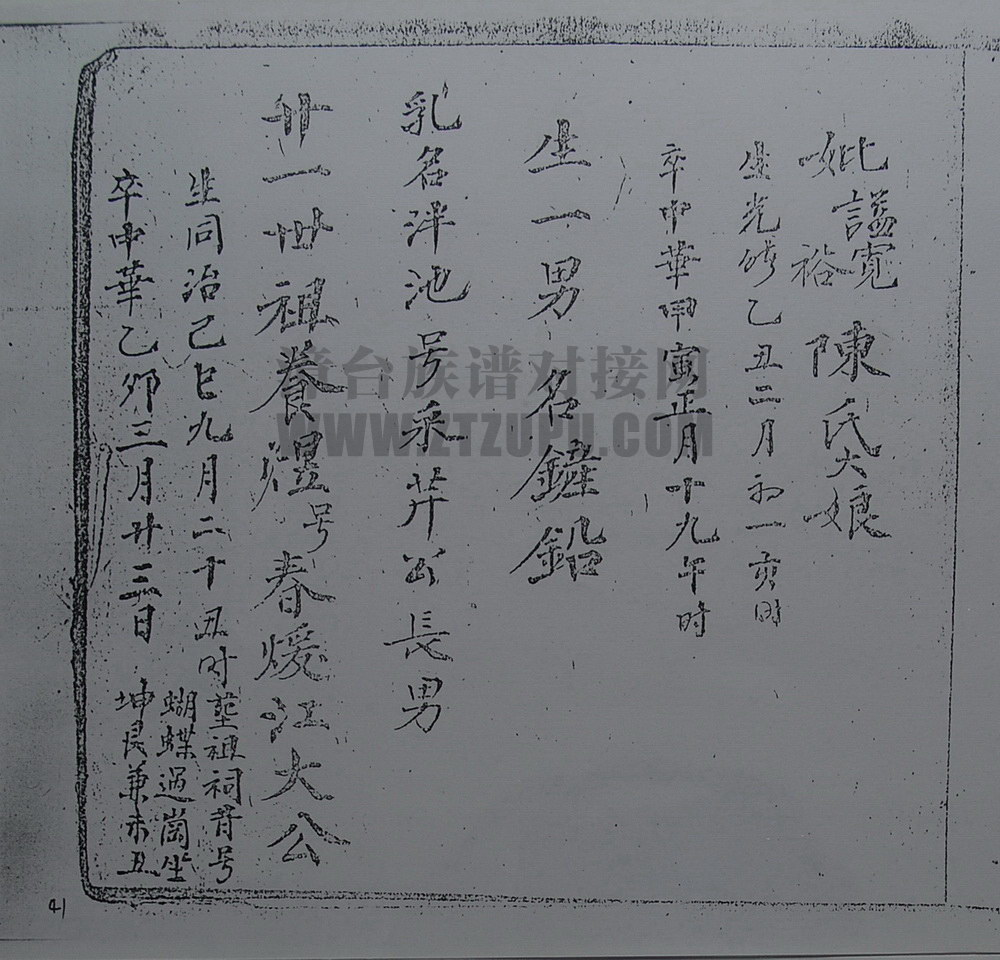 妣諡寬裕陳氏大娘
生光緒乙丑二月初一亥时
卒中華甲寅正月十九午时
生一男名鏟鉛
乳名泮池号采芹公長男
廿一世祖養煜号春煖江大公
生同治己巳九月二十丑时
塟祖祠背号
蝴蝶過崗坐
坤艮兼未丑
卒中華乙卯三月廿三日
章台族谱对接网
WWW.ZTZUPU.COM
41